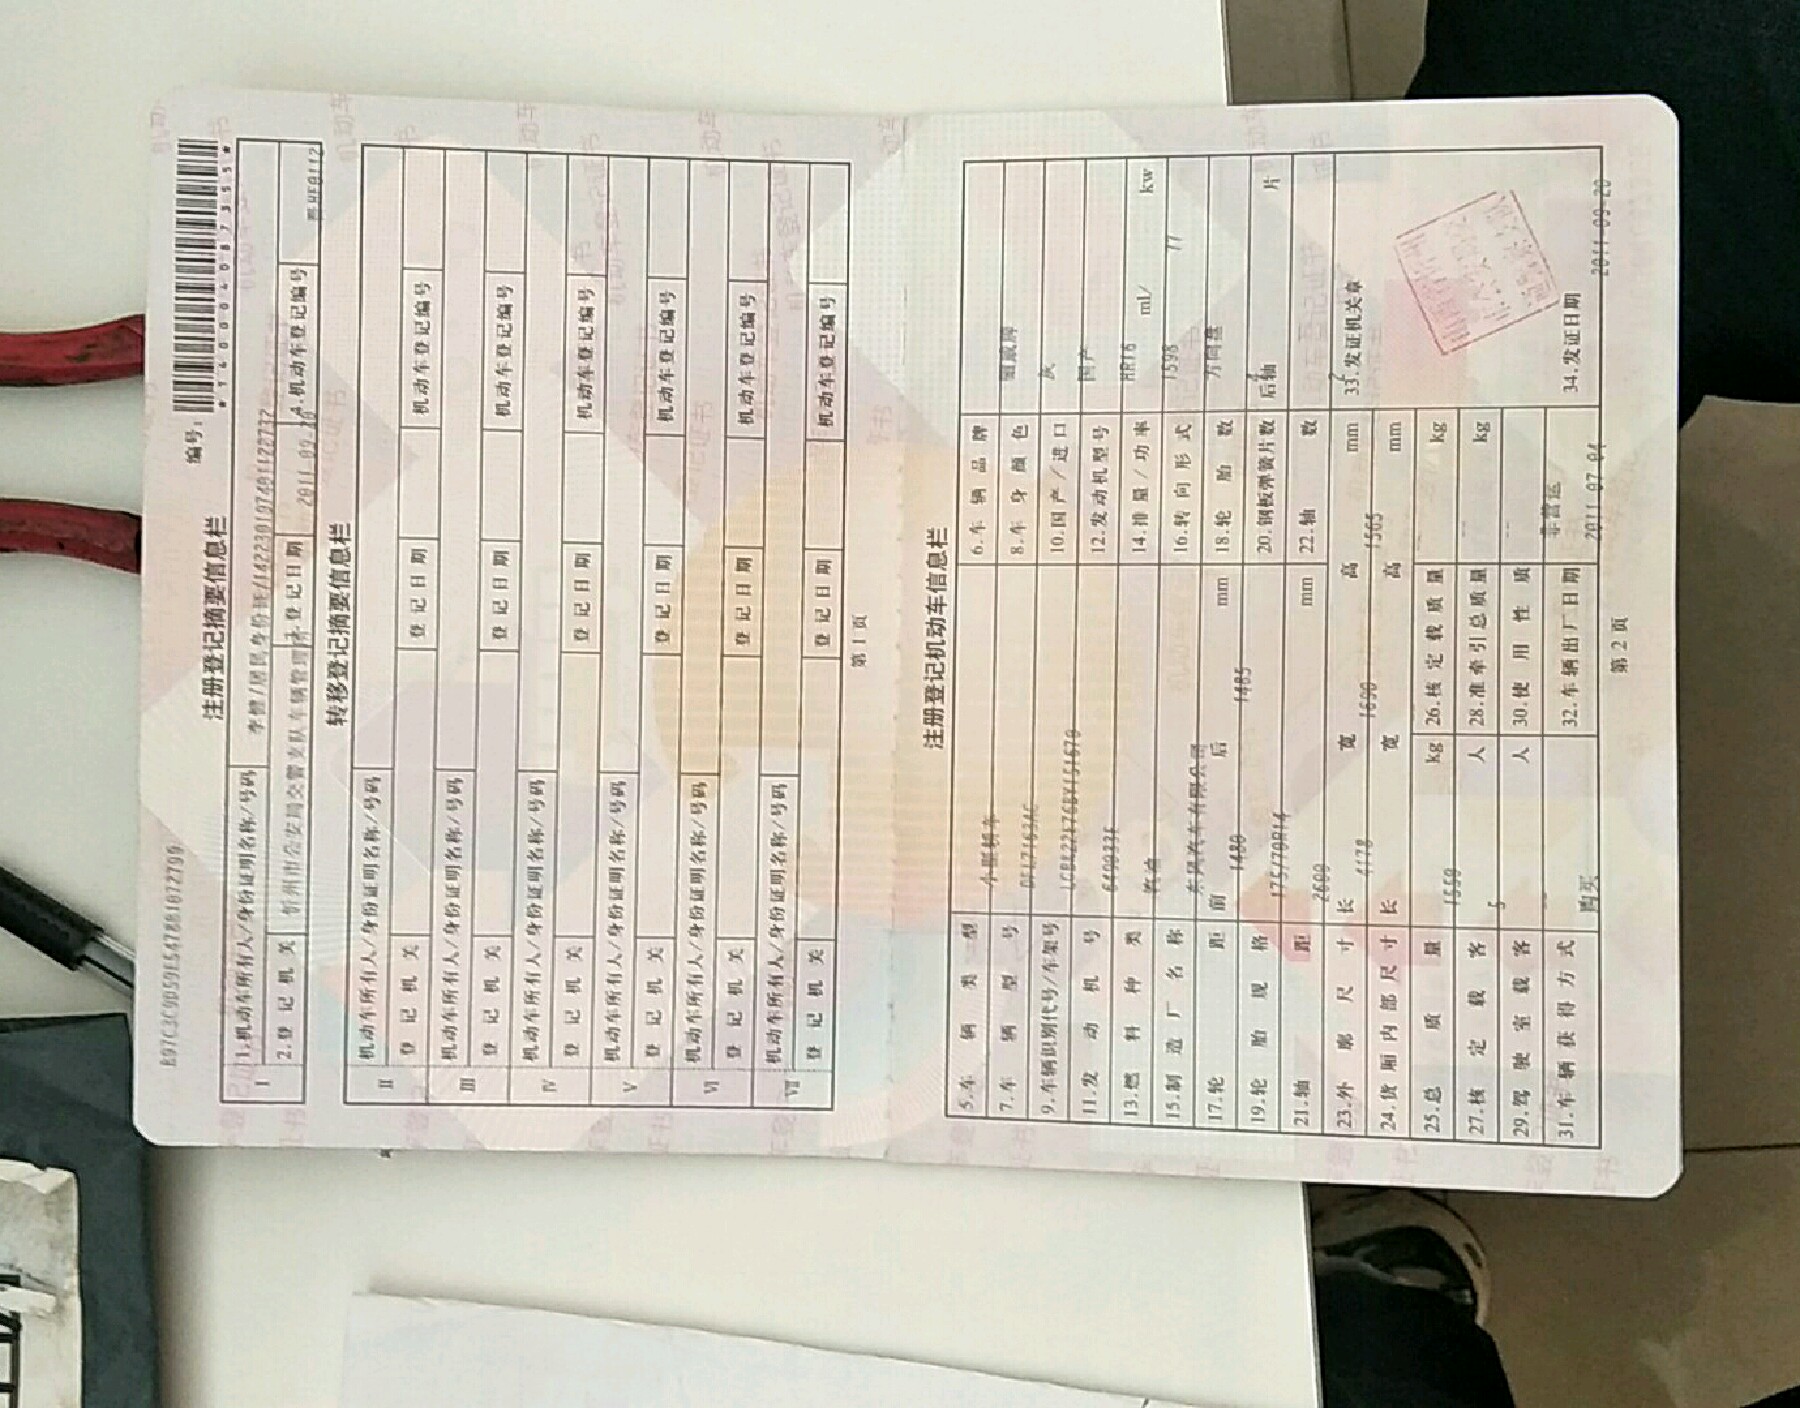 编号：
*140004087355*
注册登记摘要信息栏
I 1.机动车所有人/身份证明名称/号码 李健/居民身份证/142230197401122737
2.登记机关 忻州市公安局交警支队车辆管理所 3.登记日期 2011-09-20 4.机动车登记编号
转移登记摘要信息栏
II 机动车所有人/身份证明名称/号码
登记机关 登记日期 机动车登记编号
III 机动车所有人/身份证明名称/号码
登记机关 登记日期 机动车登记编号
IV 机动车所有人/身份证明名称/号码
登记机关 登记日期 机动车登记编号
V 机动车所有人/身份证明名称/号码
登记机关 登记日期 机动车登记编号
VI 机动车所有人/身份证明名称/号码
登记机关 登记日期 机动车登记编号
VII 机动车所有人/身份证明名称/号码
登记机关 登记日期 机动车登记编号
第 1 页
注册登记机动车信息栏
5.车辆类型 小型轿车 6.车辆品牌
7.车辆型号 8.车身颜色 灰
9.车辆识别代号/车架号 10.国产/进口 国产
11.发动机号 12.发动机型号 HR16
13.燃料种类 汽油 14.排量/功率 1598 ml/ 77 kw
15.制造厂名称 东风汽车有限公司 16.转向形式 方向盘
17.轮距 前 1480 后 1485 mm 18.轮胎数
19.轮胎规格 175/70R14 20.钢板弹簧片数 后轴 片
21.轴距 2600 mm 22.轴数 2
23.外廓尺寸 长 4178 宽 1690 高 1565 mm 33.发证机关章
24.货厢内部尺寸 长 宽 高 mm
25.总质量 1550 kg 26.核定载质量 kg
27.核定载客 5 人 28.准牵引总质量 kg
29.驾驶室载客 人 30.使用性质 非营运
31.车辆获得方式 购买 32.车辆出厂日期 2011-07-04 34.发证日期 2011-09-20
第 2 页